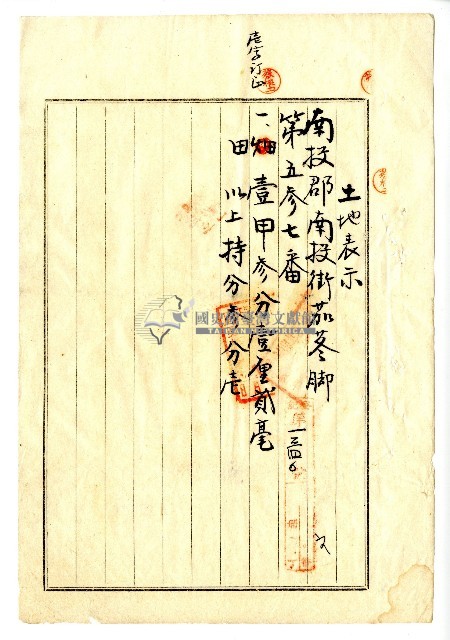 土地表示
南投郡南投街茄苳脚
第五参七番
一、畑 壹甲参分壹厘貳毫
田
以上持分
分壱
壱字訂正
國史館臺灣文獻館
TAIWAN HISTORICA